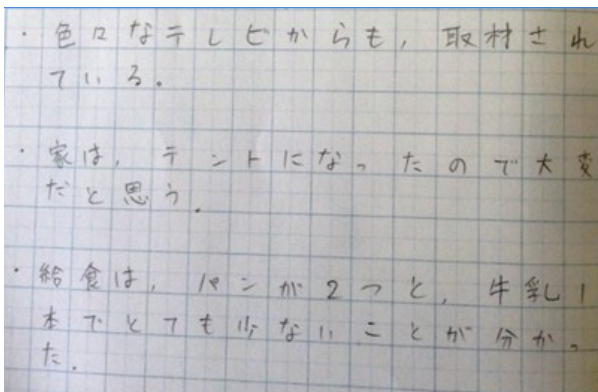 ・色々なテレビからも,取材され
ている.
・家は,テントになったので大変
だと思う.
・給食は,パンが2つと,牛乳1
本でとても少ないことが分かっ
た.